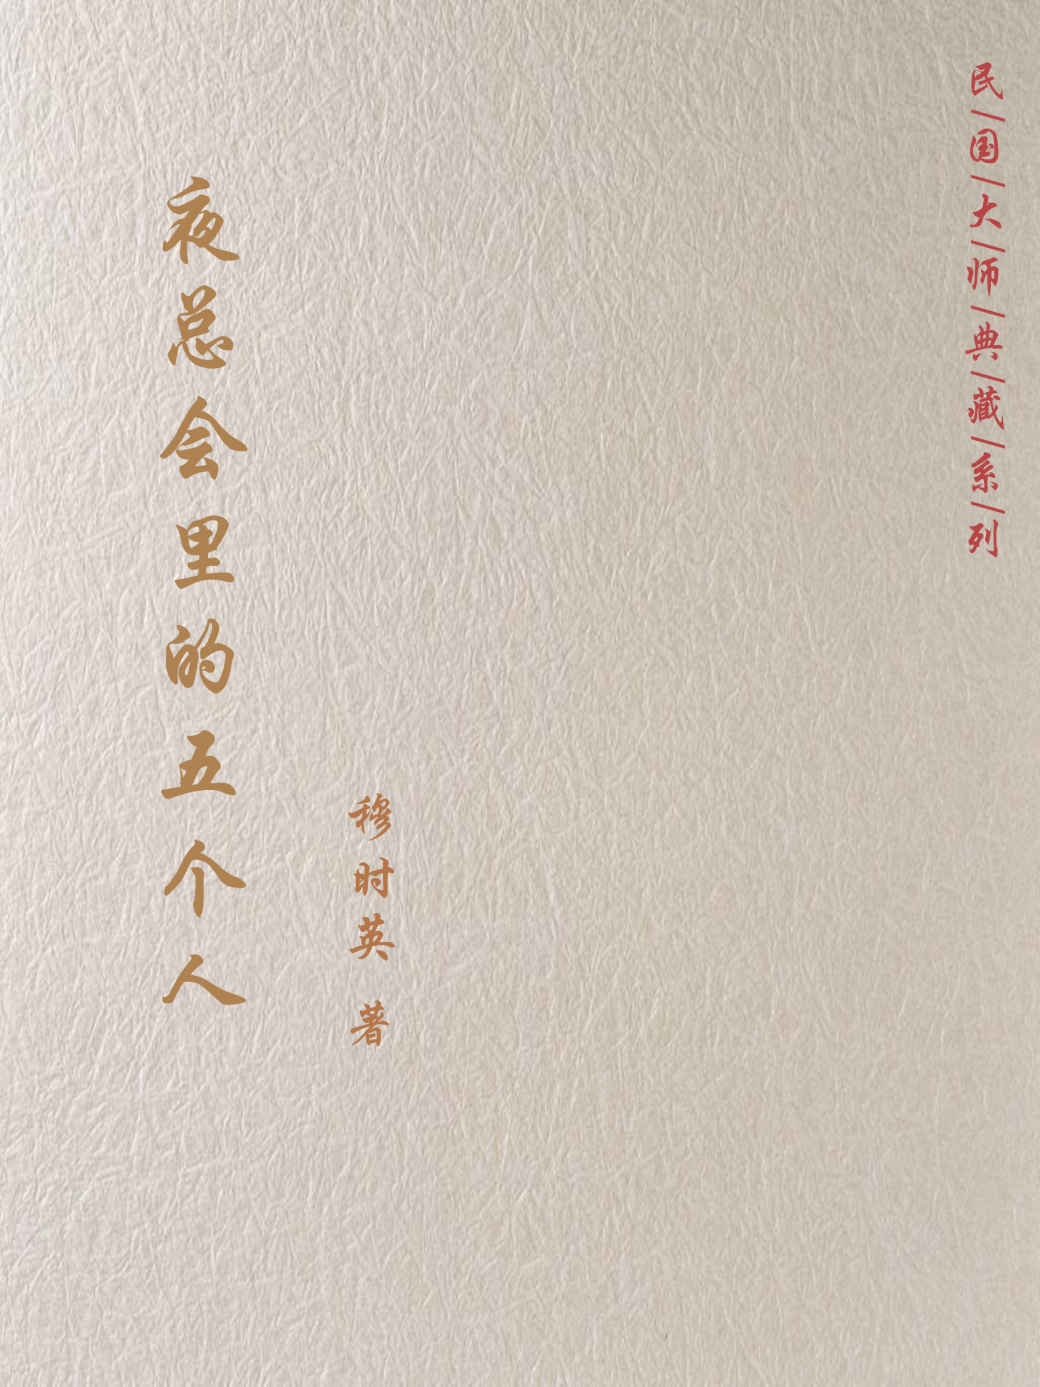 民/国/大/师/典/藏/系/列
夜总会里的五个人
穆时英 著